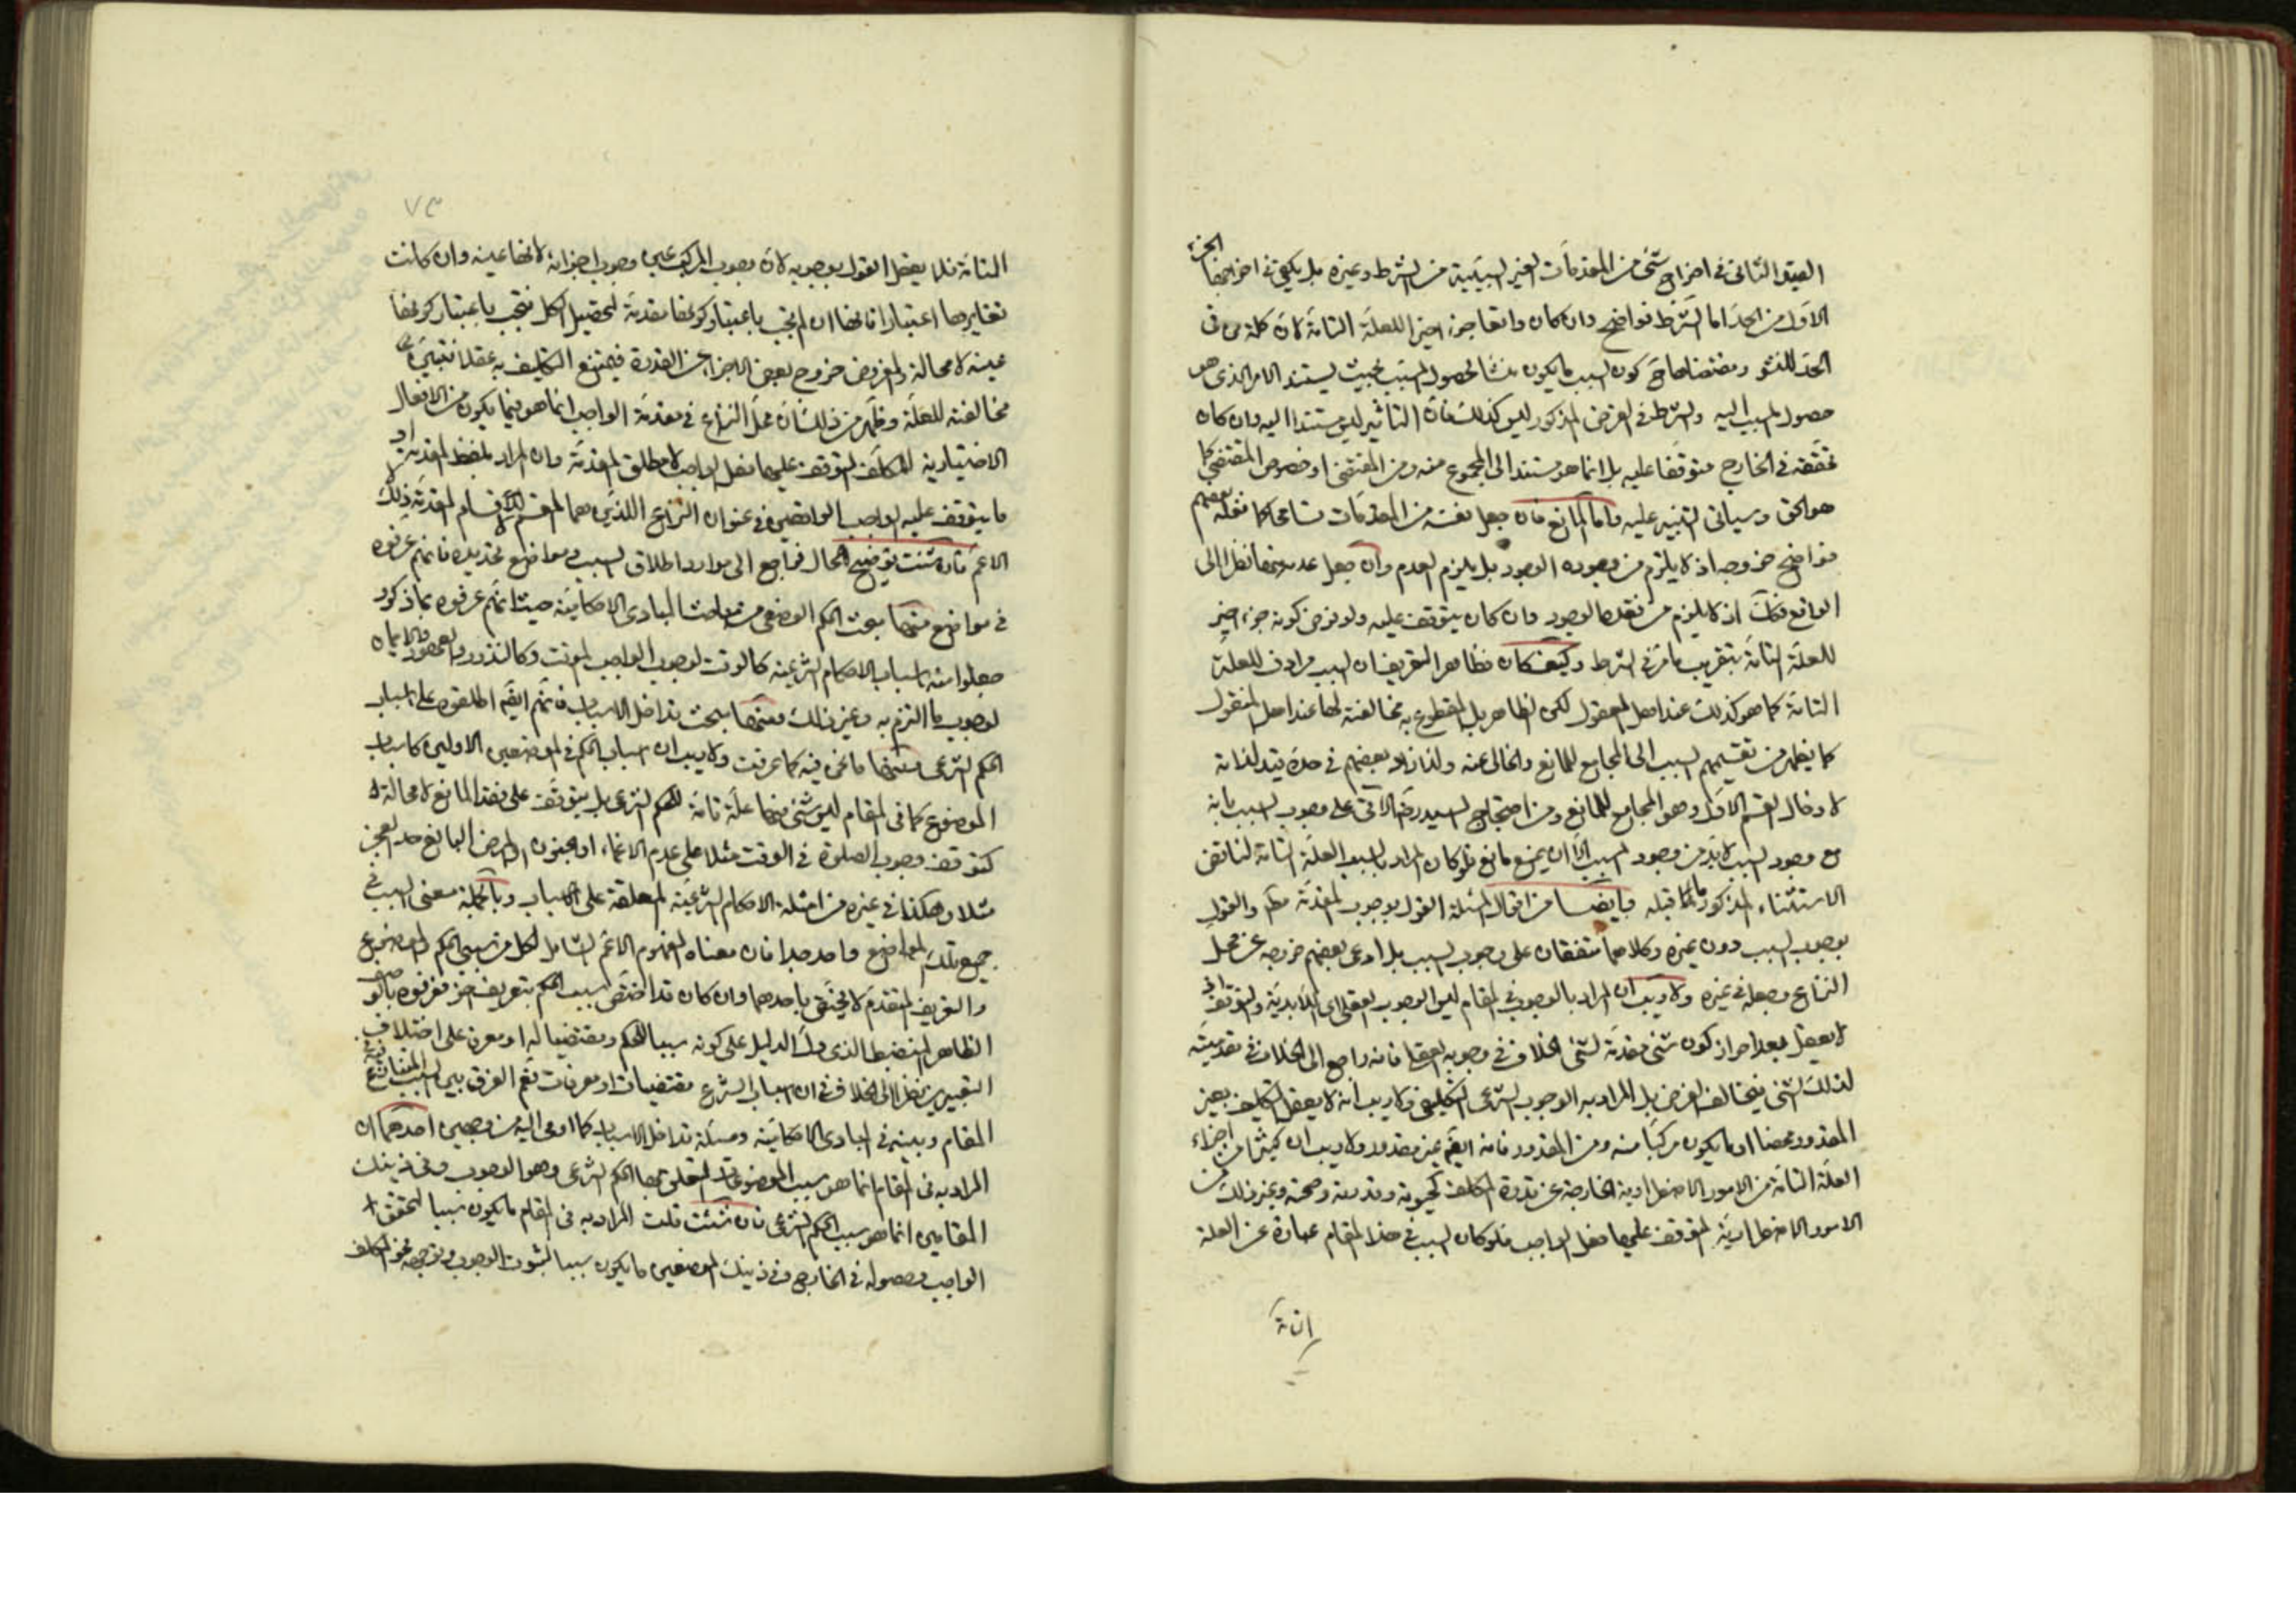 القيد الثانى فى اخراج شئ من المقدمات الغير السببية من الشرط وغيره بل يكفى فى اخراجها الجزء
الاول من الحد اما الشرط فواضح وان كان واقعا جزء اخيرا للعلة التامة لان كلمة من فى
الحد للنشو ومقتضاها ح كون السبب ما يكون منشا لحصول المسبب بحيث يستند الامر الذى هو
حصول المسبب اليه والشرط فى الفرض المذكور ليس كذلك فان التاثير ليس مستندا اليه وان كان
تحققه فى الخارج متوقفا عليه بل انما هو مستند الى المجموع منه ومن المقتضى او خصوص المقتضى كما
هو الحق وسياتى التنبيه عليه واما المانع فان جعل نفسه من المقدمات تسامحا كما نقله بعضهم
فواضح خروجه اذ لا يلزم من وجوده الوجود بل يلزم العدم وان جعل عدمه منها نظرا الى
الواقع فكك اذ لا يلزم من نفيه الوجود وان كان يتوقف عليه ولو فرض كونه جزء اخير
للعلة التامة بتقريب ما مر فى الشرط وكيف كان فظاهر التعريف ان السبب مرادف للعلة
التامة كما هو كذلك عند اهل المعقول لكن الظاهر بل المقطوع به مخالفته لها عند اهل المنقول
كما يظهر من تقسيمهم السبب الى المجامع للمانع والخالى عنه ولذا زاد بعضهم فى حده قيد لذاته
لادخال القسم الاول وهو المجامع للمانع ومن احتجاج السيد رض الآتى على وجوب السبب بانه
مع وجود السبب لابد من وجود المسبب الا ان يمنع مانع فلو كان المراد بالسبب العلة التامة لناقض
الاستثناء المذكور لما قبله وايضا من اقوال المسئلة القول بوجوب المقدمة مطم والقول
بوجوب السبب دون غيره وكلاهما متفقان على وجوب السبب بل ادعى بعضهم خروجه عن محل
النزاع وجعله فى غيره ولا ريب ان المراد بالوجوب فى المقام ليس الوجوب العقلى اى اللابدية والتوقف اذ
لا يعقل بعد احراز كون شئ مقدمة لشئ الخلاف فى وجوبه العقلى فانه راجع الى الخلاف فى مقدميته
لذلك الشئ فيخالف الفرض بل المراد به الوجوب الشرعى التكليفى ولا ريب انه لا يعقل التكليف بغير
المقدور محضا او ما يكون مركبا منه ومن المقدور فانه ايضا غير مقدور ولا ريب ان كثيرا من اجزاء
العلة التامة من الامور الاضطرارية الخارجة عن قدرة المكلف كحيوته وقدرته وصحته وغير ذلك من
الامور الاضطرارية المتوقف عليها فعل الواجب فلو كان السبب فى هذا المقام عبارة عن العلة
التامة
٧٣
التامة فلا يعقل القول بوجوبه لان وجوب المركب عين وجوب اجزائه لانها عينه وان كانت
تغايرها اعتبارا فانها ان لم تجب باعتبار كونها مقدمة لتحصيل الكل فتجب باعتبار كونها
عينه لا محالة والمفروض خروج بعض الاجزاء عن القدرة فيمتنع التكليف به عقلا فتبين
مخالفته للعلة وظهر من ذلك ان محل النزاع فى مقدمة الواجب انما هو فيما يكون من الافعال
الاختيارية للمكلف المتوقف عليها فعل الواجب لا مطلق المقدمة وان المراد بلفظ المقدمة او
ما يتوقف عليه الواجب الواقعين فى عنوان النزاع اللذين هما المقسم لاقسام المقدمة ذلك لا
الاعم فان شئت توضيح الحال فراجع الى موارد اطلاق السبب ومواضع تحديده فانهم عرفوه
فى مواضع منها مبحث الحكم الوضعى من مباحث المبادى الاحكامية حيث انهم عرفوه بما ذكر و
جعلوا منه اسباب الاحكام الشرعية كالوقت لوجوب الواجب الموقت وكالنذور والعهود والايمان
لوجوب ما التزم به وغير ذلك ومنها مبحث تداخل الاسباب فانهم ايضا اطلقوه على اسباب
الحكم الشرعى ومنها ما نحن فيه كما عرفت ولا ريب ان اسباب الحكم فى الموضعين الاولين كاسباب
الموضوع كما فى المقام ليس شئ منها علة تامة للحكم الشرعى بل يتوقف على فقد المانع لا محالة
كتوقف وجوب الصلوة فى الوقت مثلا على عدم الاغماء او الجنون او المرض البالغ حد العجز
مثلا وهكذا فى غيره من امثلة الاحكام الشرعية المعلقة على الاسباب وبالجملة معنى السبب فى
جميع تلك المواضع واحد جدا فان معناه المفهوم الاعم الشامل لكل من سببى الحكم والموضوع
والتعريف المتقدم لا يختص باحدهما وان كان قد اختص سبب الحكم بتعريف اخر فعرفوه بالوصف
الظاهر المنضبط الذى دل الدليل على كونه سببا للحكم ومقتضيا له او معرفا على اختلاف
التعبيرين نظرا الى الخلاف فى ان اسباب الشرع مقتضيات او معرفات نعم الفرق بين السبب المتنازع فيه فى
المقام وبينه فى المبادى الاحكامية ومسئلة تداخل الاسباب كما اومى اليه من وجهين احدهما ان
المراد به فى المقام انما هو سبب الموضوعات المتعلق بها الحكم الشرعى وهو الوجوب وفى ذينك
المقامين انما هو سبب الحكم الشرعى فان شئت قلت المراد به فى المقام ما يكون سببا لتحقق
الواجب وحصوله فى الخارج وفى ذينك الموضعين ما يكون سببا لثبوت الوجوب وتوجهه نحو المكلف